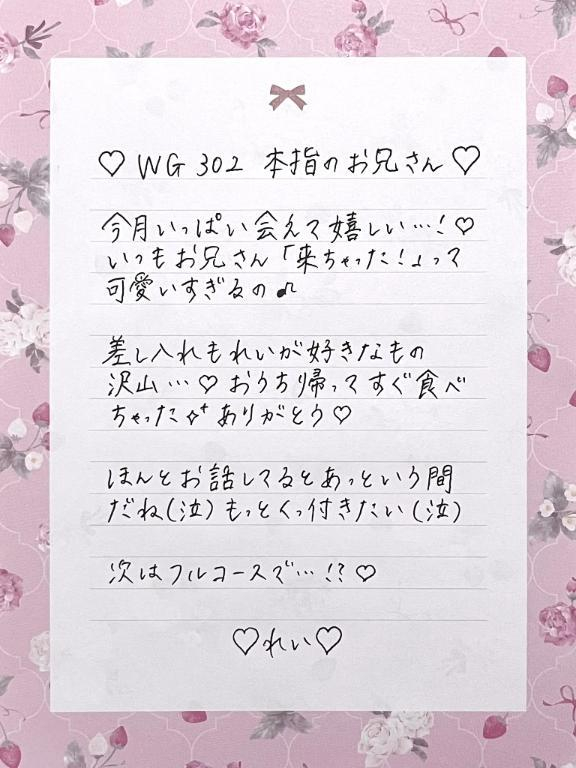 ♡ WG 302 本指のお兄さん ♡
今月いっぱい会えて嬉しい…！♡
いつもお兄さん「来ちゃった！」って
可愛いすぎるの♫
差し入れもれいが好きなもの
沢山…♡ おうち帰ってすぐ食べ
ちゃった✧⁺ ありがとう♡
ほんとお話してるとあっという間
だね(泣) もっとくっ付きたい(泣)
次はフルコースで…!? ♡
♡れい♡